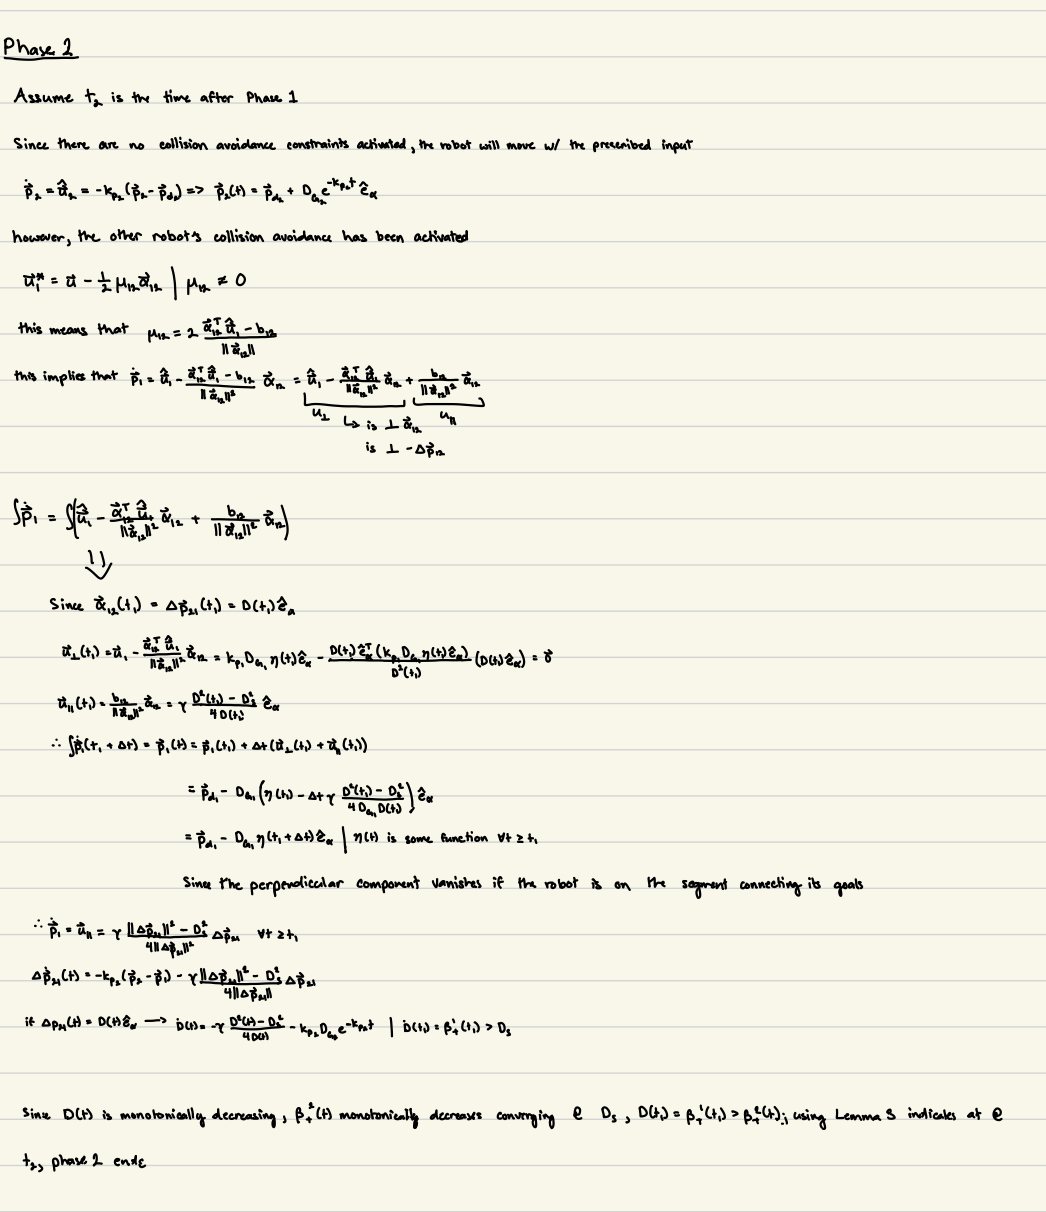 Phase 2
Assume t₂ is the time after Phase 1
Since there are no collision avoidance constraints activated, the robot will move w/ the prescribed input
ṗ⃗₂ = û⃗₂ = -k_{p₂}(p⃗₂ - p⃗_{d₂}) => p⃗₂(t) = p⃗_{d₂} + D_{G₂}e^{-k_{p₂}t} ê_α
however, the other robot's collision avoidance has been activated
u⃗₁* = u⃗ - 1/2 μ₁₂ α⃗₁₂ | μ₁₂ ≠ 0
this means that μ₁₂ = 2 (α⃗₁₂ᵀ û⃗₁ - b₁₂)/||α⃗₁₂||
this implies that ṗ⃗₁ = û⃗₁ - (α⃗₁₂ᵀ û⃗₁ - b₁₂)/||α⃗₁₂||² α⃗₁₂ = û⃗₁ - (α⃗₁₂ᵀ û⃗₁)/||α⃗₁₂||² α⃗₁₂ + b₁₂/||α⃗₁₂||² α⃗₁₂
u_⊥ ↳ is ⊥ α⃗₁₂ u_∥
is ⊥ -Δp⃗₁₂
∫ṗ⃗₁ = ∫(û⃗₁ - (α⃗₁₂ᵀ û⃗₁)/||α⃗₁₂||² α⃗₁₂ + b₁₂/||α⃗₁₂||² α⃗₁₂)
⇓
Since α⃗₁₂(t₁) = Δp⃗₂₁(t₁) = D(t₁)ê_α
u⃗_⊥(t₁) = u⃗₁ - (α⃗₁₂ᵀ û⃗₁)/||α⃗₁₂||² α⃗₁₂ = k_{p₁} D_{G₁} η(t)ê_α - (D(t₁)ê_αᵀ(k_{p₁} D_{G₁} η(t)ê_α))/D²(t₁) (D(t)ê_α) = 0⃗
u⃗_∥(t₁) = b₁₂/||α⃗₁₂||² α⃗₁₂ = γ (D²(t₁) - D_s²)/(4D(t₁)) ê_α
∴ ∫ṗ⃗₁(t₁ + Δt) = p⃗₁(t) = p⃗₁(t₁) + Δt(u⃗_⊥(t₁) + u⃗_∥(t₁))
= p⃗_{d₁} - D_{G₁}(η(t₁) - Δt γ (D²(t₁) - D_s²)/(4D_{G₁}D(t₁))) ê_α
= p⃗_{d₁} - D_{G₁} η(t₁ + Δt)ê_α | η(t) is some function ∀t ≥ t₁
Since the perpendicular component vanishes if the robot is on the segment connecting its goals
∴ ṗ⃗₁ = u⃗_∥ = γ (||Δp⃗₂₁||² - D_s²)/(4||Δp⃗₂₁||²) Δp⃗₂₁ ∀t ≥ t₁
Δṗ⃗₂₁(t) = -k_{p₂}(p⃗₂ - p⃗₁) - γ (||Δp⃗₂₁||² - D_s²)/(4||Δp⃗₂₁||) Δp⃗₂₁
if Δp₂₁(t) = D(t)ê_α ⟶ Ḋ(t) = -γ (D²(t) - D_s²)/(4D(t)) - k_{p₂} D_{G₂} e^{-k_{p₂}t} | D(t₁) = β₊¹(t₁) > D_s
Since D(t) is monotonically decreasing, β₊²(t) monotonically decreases converging @ D_s, D(t₁) = β₊¹(t₁) > β₊²(t₁); using Lemma 5 indicates at @
t₂, phase 2 ends